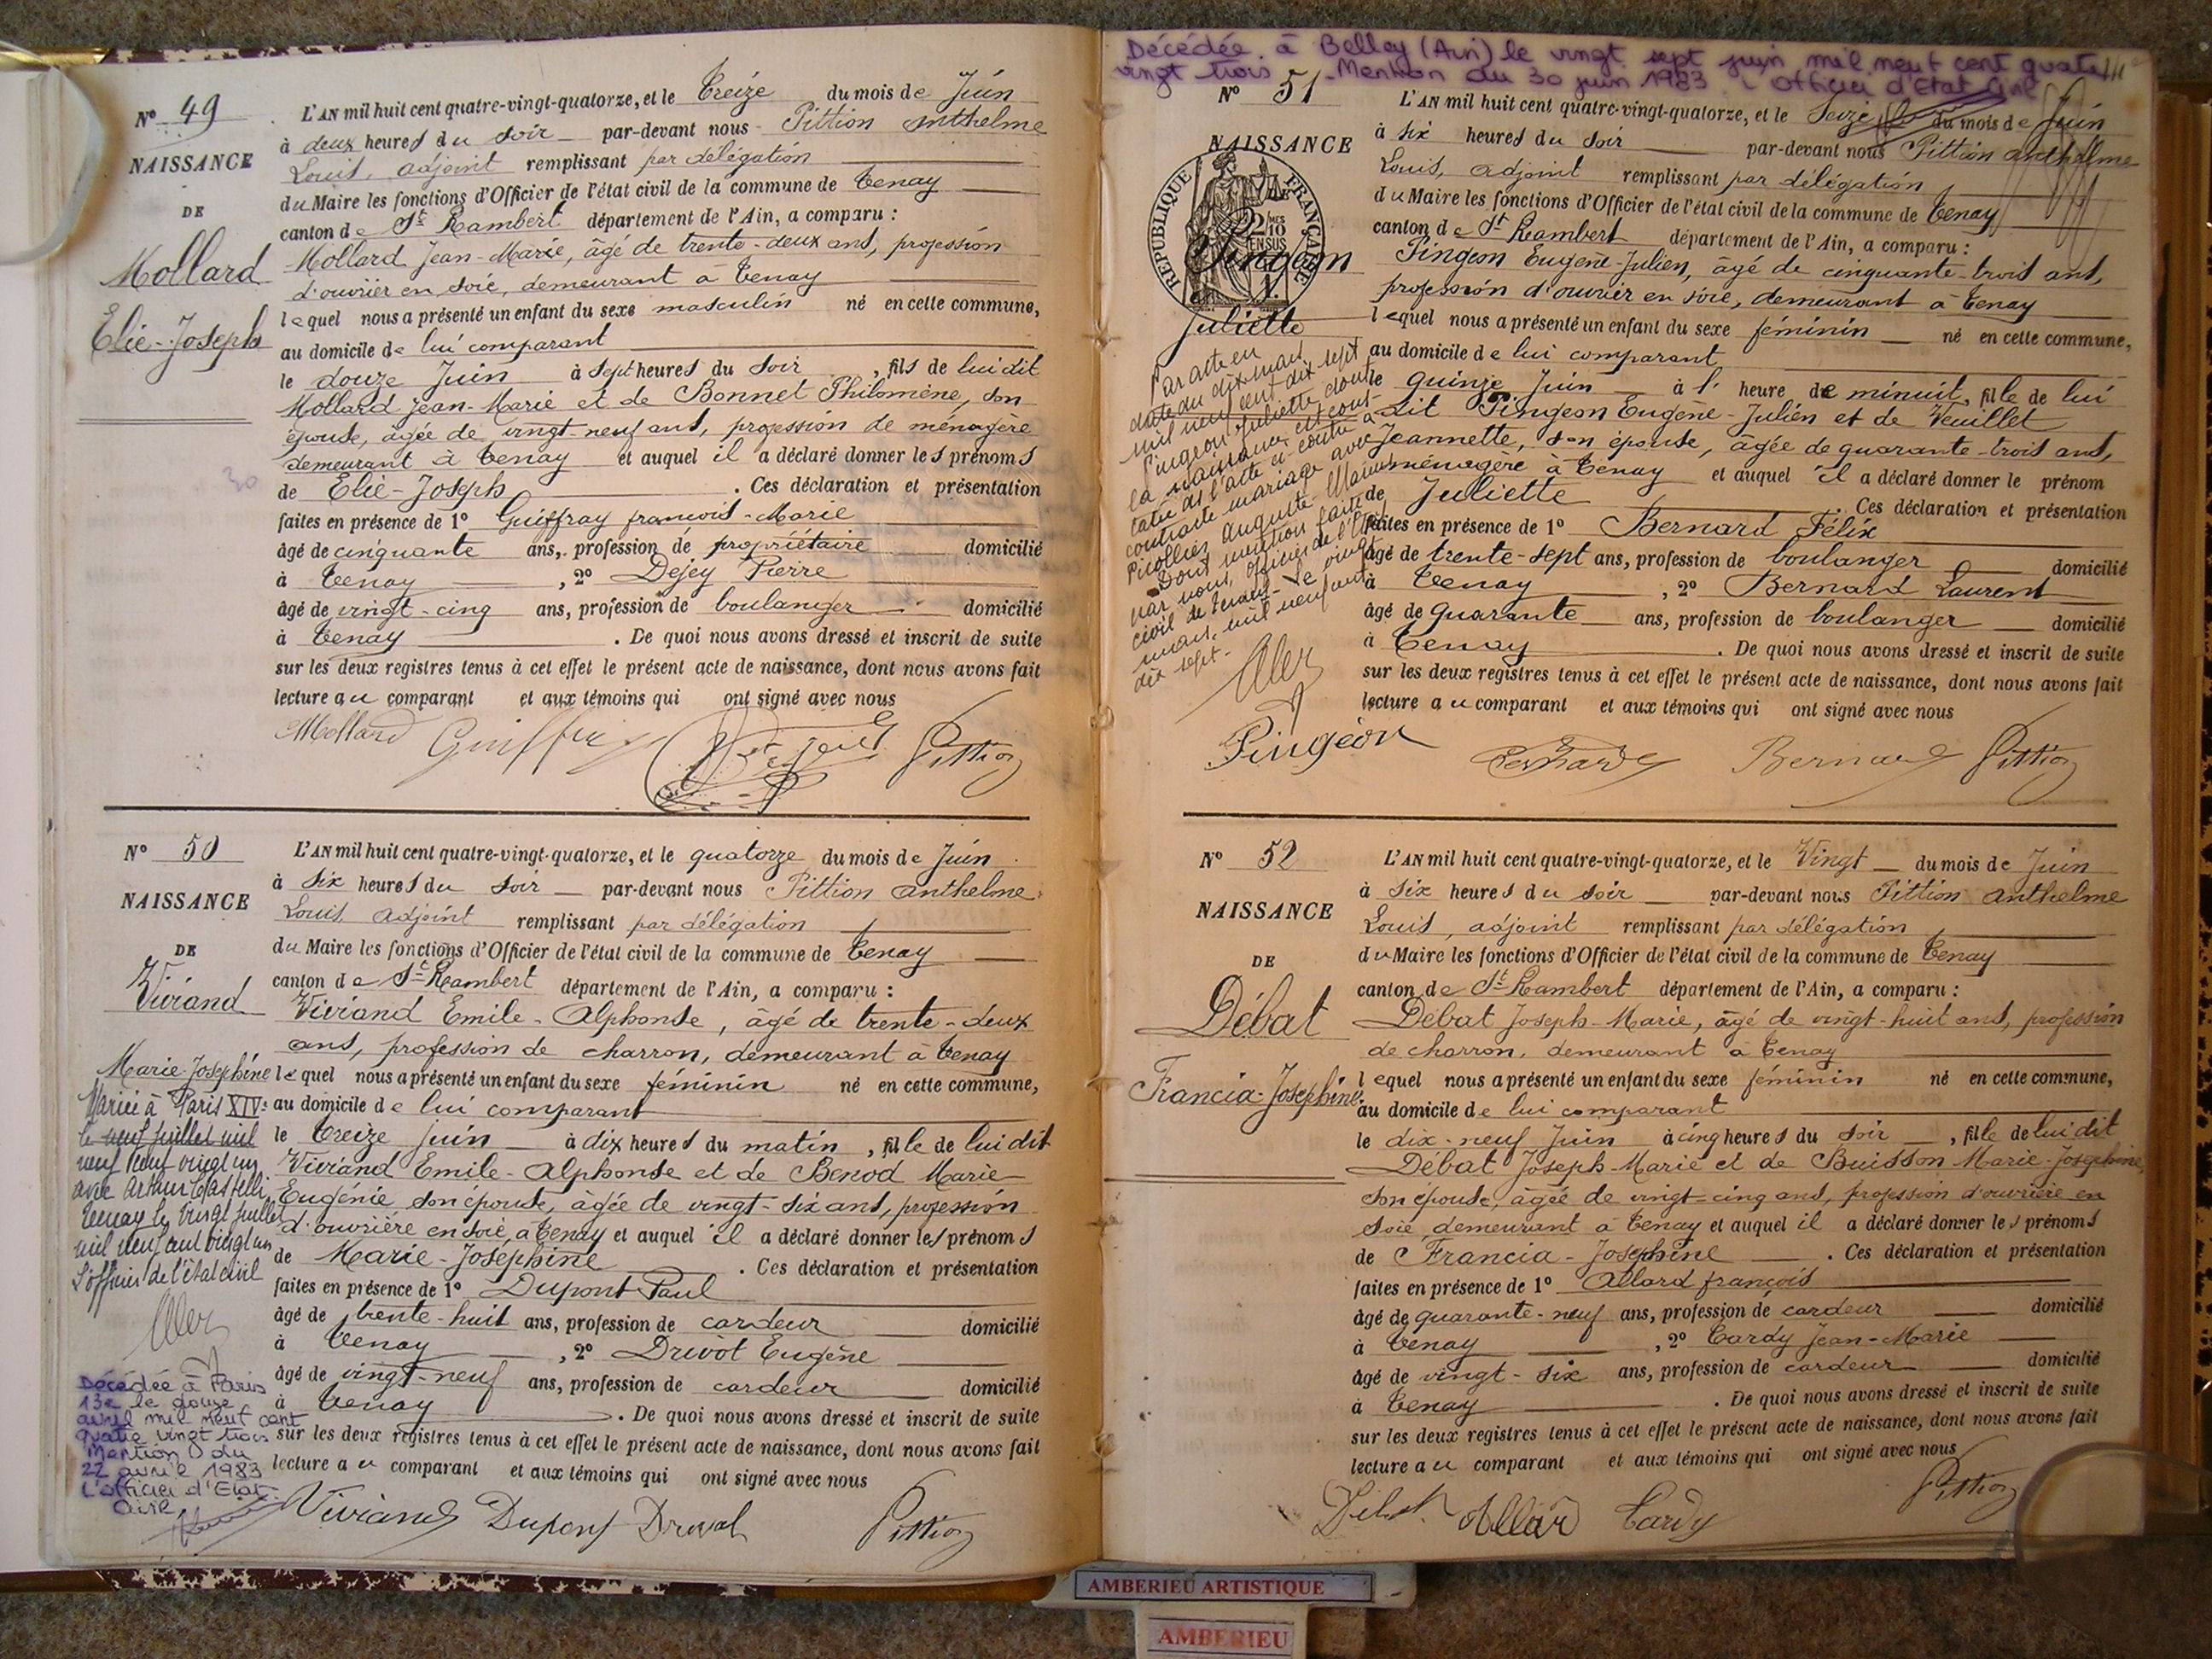 N° 49
NAISSANCE
DE
Mollard
Elie-Joseph
L'AN mil huit cent quatre-vingt-quatorze, et le Treize du mois de Juin
à deux heures du soir par-devant nous Pittion Anthelme
Louis, adjoint remplissant par délégation
du Maire les fonctions d'Officier de l'état civil de la commune de Tenay
canton de St Rambert département de l'Ain, a comparu :
Mollard Jean-Marie, âgé de trente-deux ans, profession
d'ouvrier en soie, demeurant à Tenay
lequel nous a présenté un enfant du sexe masculin né en cette commune,
au domicile de lui comparant
le douze Juin à sept heures du soir, fils de lui dit
Mollard Jean-Marie et de Bonnet Philomène, son
épouse, âgée de vingt-neuf ans, profession de ménagère
demeurant à Tenay et auquel il a déclaré donner les prénoms
de Elie-Joseph. Ces déclaration et présentation
faites en présence de 1° Guiffray françois-Marie
âgé de cinquante ans, profession de propriétaire domicilié
à Tenay, 2° Dejey Pierre
âgé de vingt-cinq ans, profession de boulanger domicilié
à Tenay. De quoi nous avons dressé et inscrit de suite
sur les deux registres tenus à cet effet le présent acte de naissance, dont nous avons fait
lecture au comparant et aux témoins qui ont signé avec nous
Mollard Pittion
N° 50
NAISSANCE
DE
Vivrand
Marie-Joséphine
Mariée à Paris XIVe
le neuf juillet mil
neuf cent vingt un
avec Arthur Castelli
Tenay le vingt juillet
mil neuf cent vingt un
L'officier de l'état civil
Décédée à Paris
13e le douze
avril mil neuf cent
quatre vingt trois
Mention du
22 avril 1983
L'officier d'Etat
Civil
L'AN mil huit cent quatre-vingt-quatorze, et le quatorze du mois de Juin
à six heures du soir par-devant nous Pittion Anthelme
Louis adjoint remplissant par délégation
du Maire les fonctions d'Officier de l'état civil de la commune de Tenay
canton de St Rambert département de l'Ain, a comparu :
Vivrand Emile-Alphonse, âgé de trente-deux
ans, profession de charron, demeurant à Tenay
lequel nous a présenté un enfant du sexe féminin né en cette commune,
au domicile de lui comparant
le treize juin à dix heures du matin, fille de lui dit
Vivrand Emile-Alphonse et de Benod Marie
Eugénie, son épouse, âgée de vingt-six ans, profession
d'ouvrière en soie, à Tenay et auquel il a déclaré donner les prénoms
de Marie-Joséphine. Ces déclaration et présentation
faites en présence de 1° Dupont Paul
âgé de trente-huit ans, profession de cardeur domicilié
à Tenay, 2° Drevot Eugène
âgé de vingt-neuf ans, profession de cardeur domicilié
à Tenay. De quoi nous avons dressé et inscrit de suite
sur les deux registres tenus à cet effet le présent acte de naissance, dont nous avons fait
lecture au comparant et aux témoins qui ont signé avec nous
Vivrand Dupont Pittion
Décédée à Belley (Ain) le vingt sept juin mil neuf cent quatre
vingt trois - Mention du 30 juin 1983 L'Officier d'Etat Civil
N° 51
NAISSANCE
DE
REPUBLIQUE FRANCAISE
Pingeon
Juliette
Par acte en
date du dix mars
mil neuf cent dix sept
Pingeon Juliette dont
la naissance est cons-
tatée as l'acte ci contre a
contracté mariage avec
Picollier Auguste Marius
Dont mention faite
par nous, officier de l'état
civil de Tenay - le vingt
mars, mil neuf cent
dix sept -
L'AN mil huit cent quatre-vingt-quatorze, et le Seize du mois de Juin
à six heures du soir par-devant nous Pittion Anthelme
Louis, adjoint remplissant par délégation
du Maire les fonctions d'Officier de l'état civil de la commune de Tenay
canton de St Rambert département de l'Ain, a comparu :
Pingeon Eugène-Julien, âgé de cinquante-trois ans,
profession d'ouvrier en soie, demeurant à Tenay
lequel nous a présenté un enfant du sexe féminin né en cette commune,
au domicile de lui comparant
le quinze Juin à l' heure de minuit, fille de lui
dit Pingeon Eugène-Julien et de Veuillet
Jeannette, son épouse, âgée de quarante-trois ans,
ménagère à Tenay et auquel il a déclaré donner le prénom
de Juliette. Ces déclaration et présentation
faites en présence de 1° Bernard Félix
âgé de trente-sept ans, profession de boulanger domicilié
à Tenay, 2° Bernard Laurent
âgé de quarante ans, profession de boulanger domicilié
à Tenay. De quoi nous avons dressé et inscrit de suite
sur les deux registres tenus à cet effet le présent acte de naissance, dont nous avons fait
lecture au comparant et aux témoins qui ont signé avec nous
Pingeon Bernard Bernard Pittion
N° 52
NAISSANCE
DE
Débat
Francia-Joséphine
L'AN mil huit cent quatre-vingt-quatorze, et le Vingt du mois de Juin
à six heures du soir par-devant nous Pittion Anthelme
Louis, adjoint remplissant par délégation
du Maire les fonctions d'Officier de l'état civil de la commune de Tenay
canton de St Rambert département de l'Ain, a comparu :
Débat Joseph-Marie, âgé de vingt-huit ans, profession
de charron, demeurant à Tenay
lequel nous a présenté un enfant du sexe féminin né en cette commune,
au domicile de lui comparant
le dix-neuf Juin à cinq heures du soir, fille de lui dit
Débat Joseph-Marie et de Buisson Marie-Joséphine,
son épouse, âgée de vingt-cinq ans, profession d'ouvrière en
soie, demeurant à Tenay et auquel il a déclaré donner les prénoms
de Francia-Joséphine. Ces déclaration et présentation
faites en présence de 1° Allard françois
âgé de quarante-neuf ans, profession de cardeur domicilié
à Tenay, 2° Cardy Jean-Marie
âgé de vingt-six ans, profession de cardeur domicilié
à Tenay. De quoi nous avons dressé et inscrit de suite
sur les deux registres tenus à cet effet le présent acte de naissance, dont nous avons fait
lecture au comparant et aux témoins qui ont signé avec nous
Débat Allard Cardy Pittion
AMBERIEU ARTISTIQUE
AMBERIEU